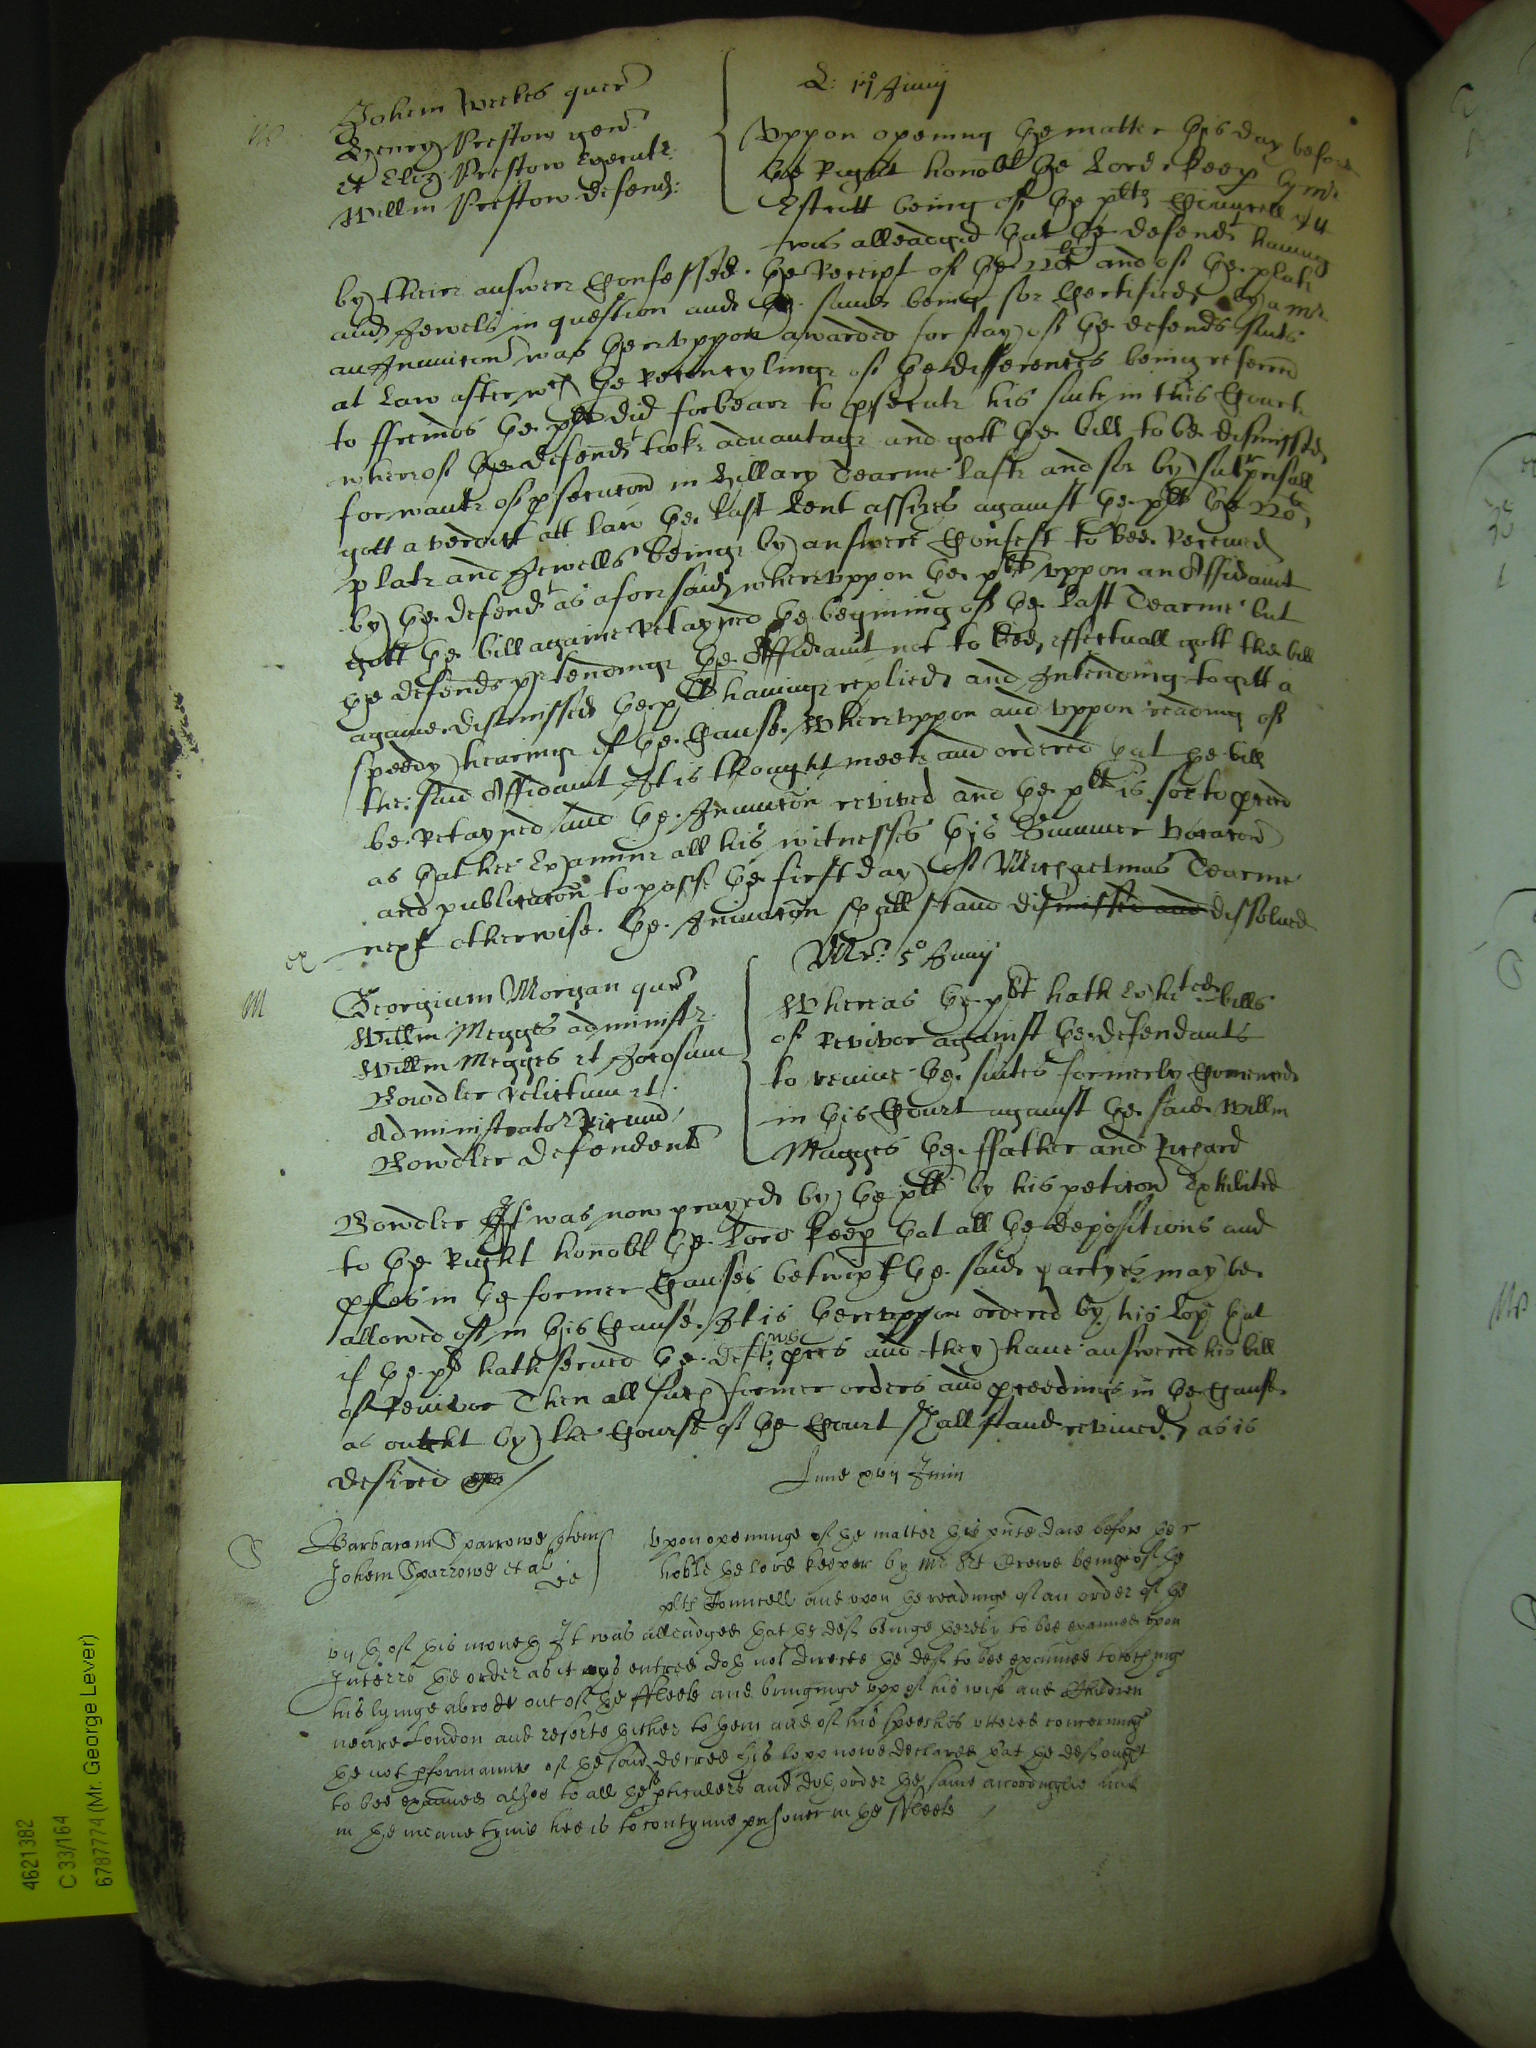 W
Johem Weekes quer
Henry Preston gen
et Eliz Preston Executr
Willm Preston defend:
L: 17 Junij
Vppon opening the matter this day before
the Right honoble the Lord Keep by Mr
Estcott being of the plts Councell yt
was alleadged that the defendts having
by their answer Confessed the Receipt of the 220l and of the plate
and Jewels in question and the same being soe Certified by a Mr
an Iniunccon was therevppon awarded for stay of the defends suits
at Law after wch the Reconcylinge of the differences being referred
to ffreinds the plt did forbeare to psecute his suite in this Court
whereof the defendt tooke advantage and gott the bill to be dismissed
for want of psecucon in Hillary Tearme last and soe by surprisall
gott a verdict att law the last Lent assizes against the plt the 220l
plate and Jewells beinge by answere Confest to bee Received
by the defendt as aforesaid wherevppon the plt vppon an Affidavit
gott the bill againe retayned the begining of the last Tearme but
the defends prtendinge the Affidavit not to bee effectuall gott the bill
againe dismissed the plt havinge replied and Intending to gett a
speedy hearinge of the Cause. Wherevppon and vppon reading of
the said Affidavit It is thought meete and ordered that the bill
be retayned and the Iniunccon revived and the plt is soe to pceed
as that hee Examine all his witnesses this Summer Vacacon
and publicacon to passe the first day of Michaelmas Tearme
next otherwise the Iniunccon shall stand dismissed and dissolved
ex
M
Georgium Morgan quer
Willm Megges administr
Willm Megges et Jocosam
Bowdler relictum et
Administrator Ricund
Bowdler Defendent
Mer: 5o Junij
Whereas the plt hath Exhited bills
of Revivor against the defendants
to revive the suites formerly Comenced
in this Court against the said Willm
Magges the ffather and Richard
Bowdler It was now prayed by the plt by his peticon Exhibited
to the Right honobl the Lord Keep that all the depositions and
pfes in the former Causes betwixt the said partyes may be
allowed of in this Cause. It is therevppon ordered by his Lop that
if the plt hath served the defts wth pces and they have answered his bill
of Revivor Then all such former orders and pceedings in the Cause
as ought by the Course of the Court shall stand revived as is
desired
Lune xvij Junij
S
Barbaram Sparrowe quer
Johem Sparrowe et al
de
Vpon openinge of the matter this pnte daie before the r
hoble the lord keeper by Mr Srt Crewe beinge of the
plts Councell and vpon the readinge of an order of the
of this moneth It was alleadged that the deft beinge thereby to bee examined vpon
Interro the order as it was entred doth not directe the deft to bee examined touchinge
his lyinge abrode out of the ffleete and bringinge vpp of his wife and Children
neare London and resorte thither to them and of his speeches vttered concerninge
the not pformance of the said decree his lopp nowe declared that the deft ought
to bee examined alsoe to all these pticulers and doth order the same accordinglie and
in the meane tyme hee is to contynue prisoner in the ffleete
4621382
C 33/164
6787774 (Mr. George Lever)